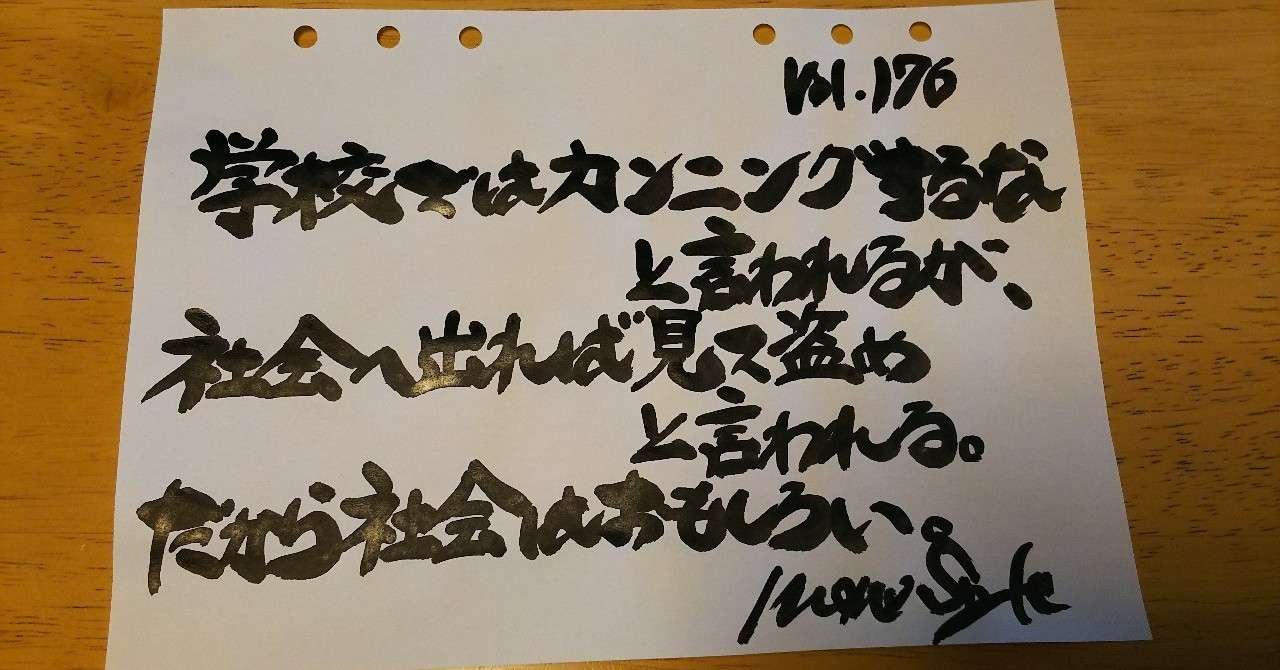 Vol.176
学校ではカンニングするな
と言われるが、
社会へ出れば見て盗め
と言われる。
だから社会はおもしろい。
Style